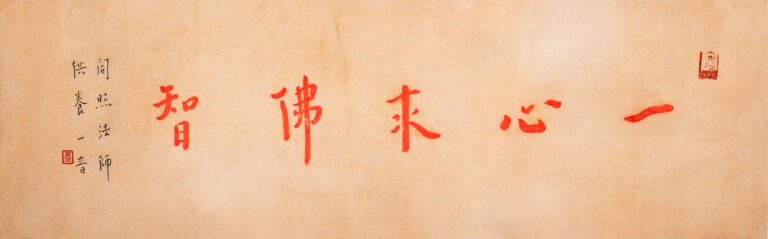 一心求佛智
照法師
供養一音